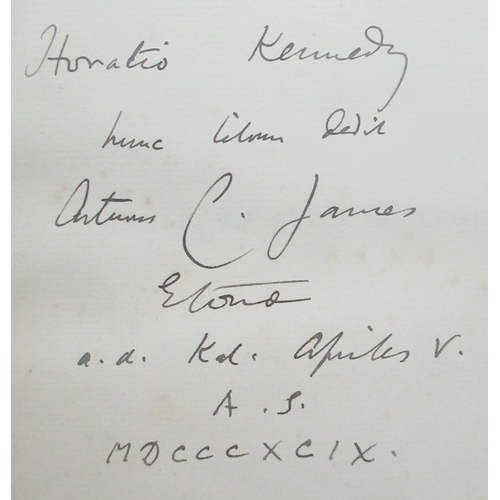 Horatio Kennedy
hunc librum dedit
Arturus C. James
Etonae
a.d. Kal. Apriles V.
A. S.
MDCCCXCIX.